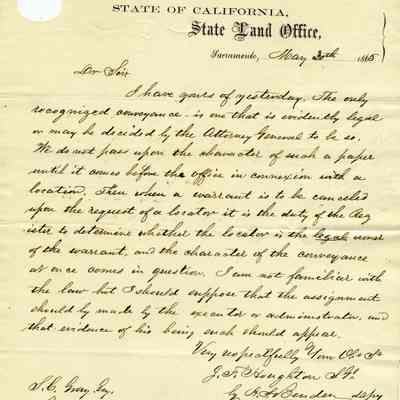 STATE OF CALIFORNIA,
State Land Office,
Sacramento, May 30th 1865
Dr Sir
I have yours of yesterday. The only
recognized conveyance is one that is evidently legal
or may be decided by the Attorney General to be so.
We do not pass upon the character of such a paper
until it comes before the office in connexion with a
location. Then when a warrant is to be canceled
upon the request of a locator it is the duty of the Reg
ister to determine whether the locator is the legal owner
of the warrant, and the character of the conveyance
at once comes in question. I am not familiar with
the law but I should suppose that the assignment
should by made by the executor or administrator, and
that evidence of his being such should appear.
Very respectfully Your Ob. St
J. F. Houghton
S. C. Gray Esq.
Depy